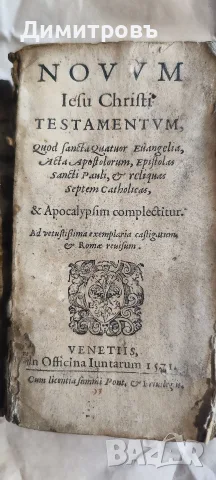 Димитровъ
NOVVM
Iesu Christi
TESTAMENTVM,
Quod sancta Quatuor Euangelia,
Acta Apostolorum, Epistolas
Sancti Pauli, & reliquas
Septem Catholicas,
& Apocalypsim complectitur.
Ad vetustissima exemplaria castigatum
& Romæ reuisum.
VENETIIS,
In Officina Iuntarum
Cum licentia summi Pont. &
bazar